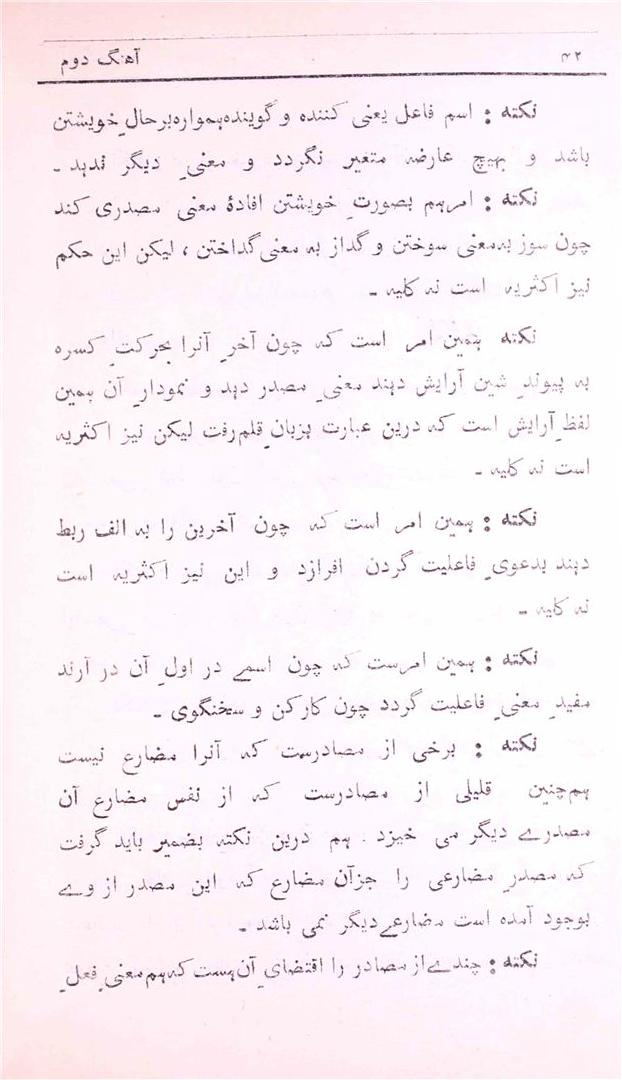 ۴۲ آهنگ دوم
نکته : اسم فاعل یعنی کننده و گوینده همواره بر حالِ خویشتن
باشد و بهیچ عارضه متغیر نگردد و معنیِ دیگر ندہد ۔
نکته : امرہم بصورتِ خویشتن افادۂ معنی مصدری کند
چون سوز بہ معنی سوختن و گداز بہ معنی گداختن ، لیکن این حکم
نیز اکثریہ است نہ کلیہ ۔
نکته ہمین امر است کہ چون آخرِ آنرا بحرکتِ کسرہ
بہ پیوندِ شین آرایش دہند معنیِ مصدر دہد و نمودارِ آن ہمین
لفظِ آرایش است کہ درین عبارت بزبانِ قلم رفت لیکن نیز اکثریہ
است نہ کلیہ ۔
نکته : ہمین امر است کہ چون آخرین را بہ الف ربط
دہند بدعویِ فاعلیت گردن افرازد و این نیز اکثریہ است
نہ کلیہ ۔
نکته : ہمین امرست کہ چون اسمے در اولِ آن در آرند
مفیدِ معنیِ فاعلیت گردد چون کارکن و سخنگوی ۔
نکته : برخی از مصادرست کہ آنرا مضارع نیست
ہم چنین قلیلی از مصادرست کہ از نفس مضارع آن
مصدرے دیگر می خیزد . ہم درین نکتہ بضمیر باید گرفت
کہ مصدرِ مضارعی را جزآن مضارع کہ این مصدر از وے
بوجود آمدہ است مضارعے دیگر نمی باشد ۔
نکته : چندے از مصادر را اقتضایِ آن ہست کہ ہم معنیِ فعلِ